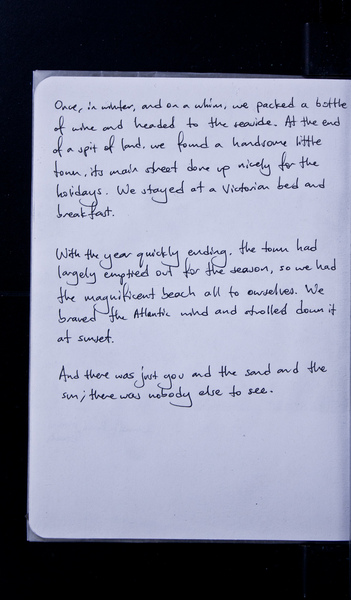 Once, in winter, and on a whim, we packed a bottle
of wine and headed to the seaside. At the end
of a spit of land, we found a handsome little
town, its main street done up nicely for the
holidays. We stayed at a Victorian bed and
breakfast.
With the year quickly ending, the town had
largely emptied out for the season, so we had
the magnificent beach all to ourselves. We
braved the Atlantic wind and strolled down it
at sunset.
And there was just you and the sand and the
sun; there was nobody else to see.